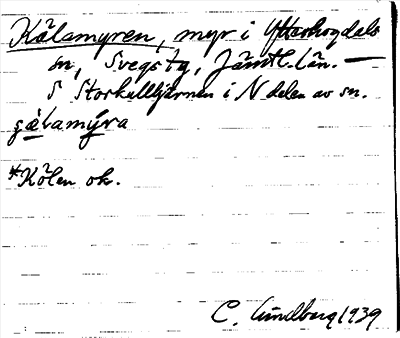 Kölamyren, myr i Ytterhogdals
sn, Svegs tg, Jämtl. län. —
S Storkulltjärnen i N delen av sn.
gö̀lamýra
*Kölen ok.
C. Lundberg 1939